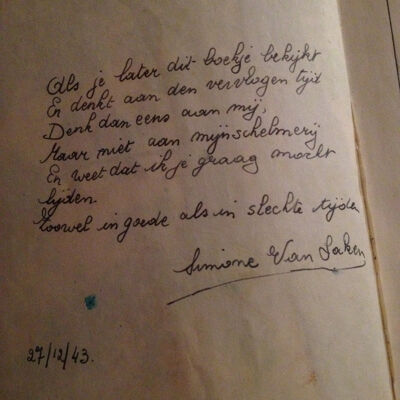 Als je later dit boekje bekijkt
En denkt aan den vervlogen tijd
Denk dan eens aan mij,
Maar niet aan mijn schelmerij
En weet dat ik je graag mocht
lijden.
Zoowel in goede als in slechte tijden
Simone Van Saken
27/12/43.